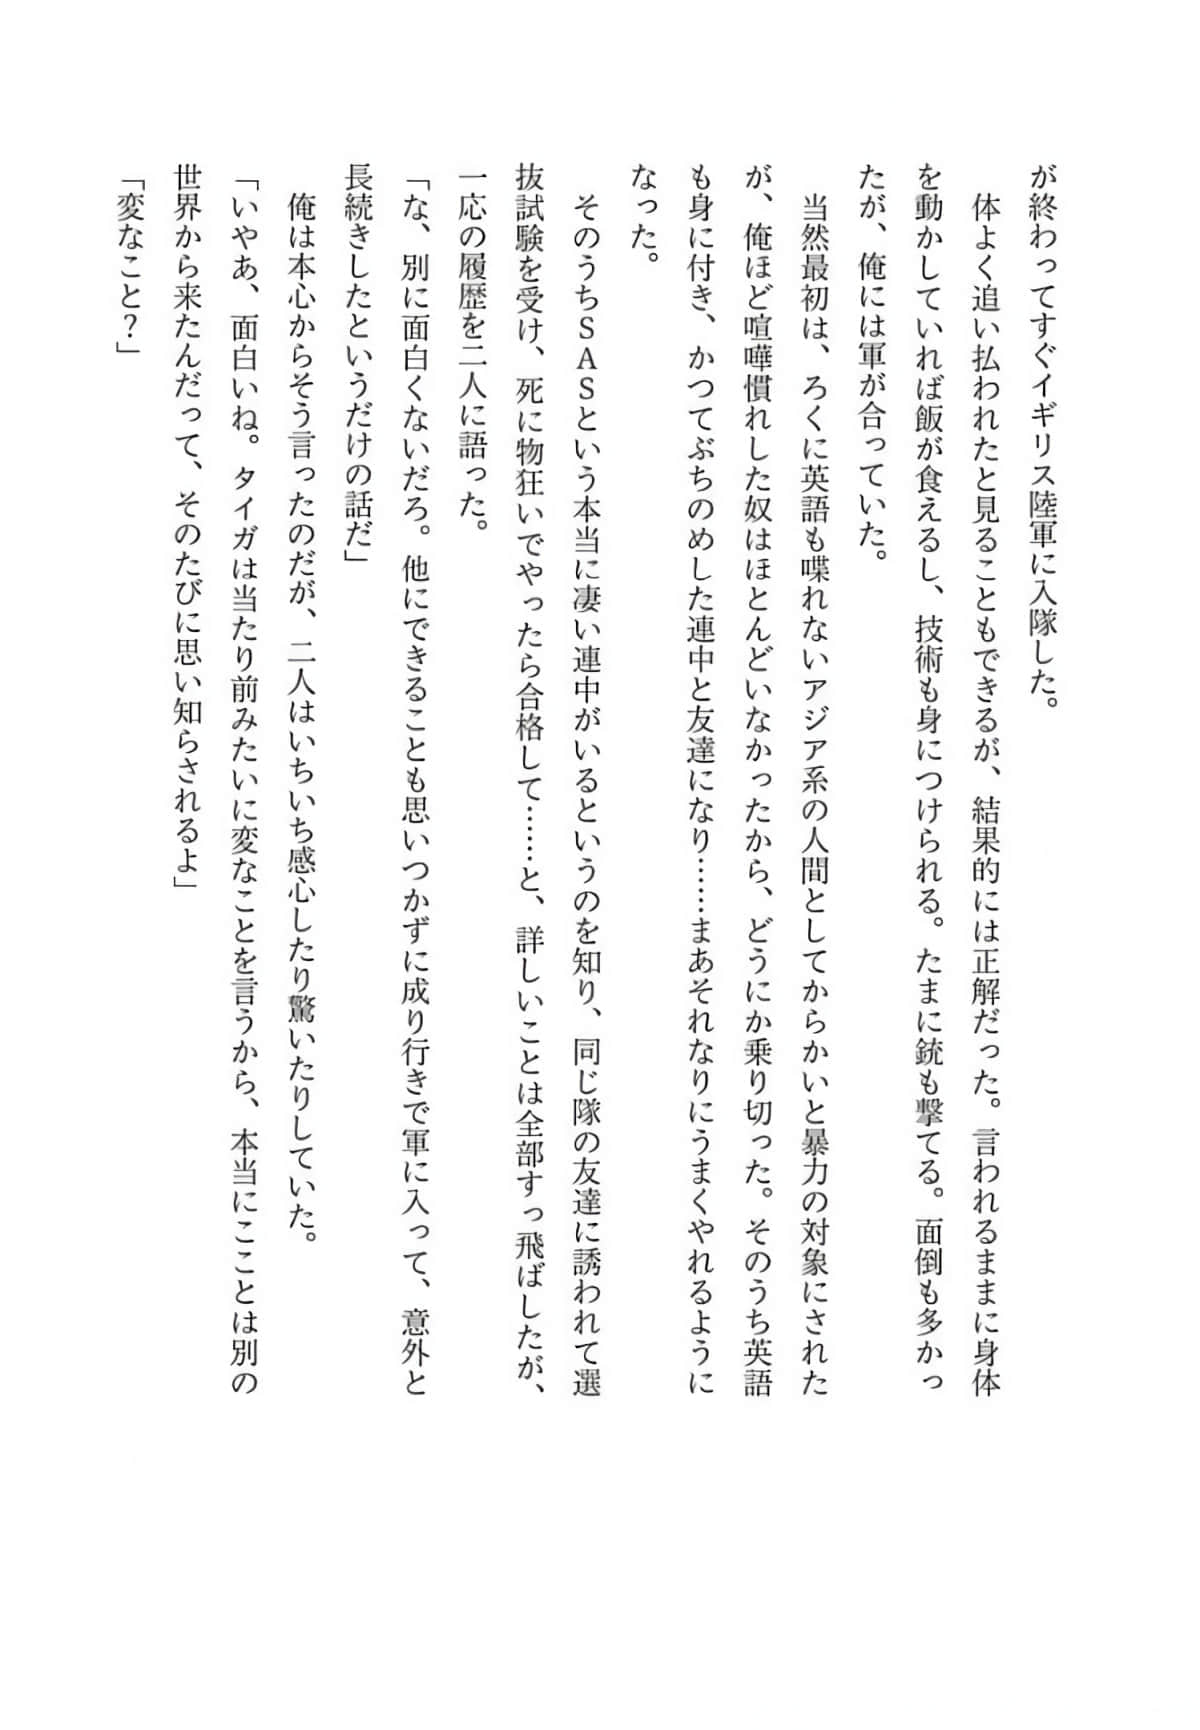 が終わってすぐイギリス陸軍に入隊した。
　体よく追い払われたと見ることもできるが、結果的には正解だった。言われるままに身体
を動かしていれば飯が食えるし、技術も身につけられる。たまに銃も撃てる。面倒も多かっ
たが、俺には軍が合っていた。
　当然最初は、ろくに英語も喋れないアジア系の人間としてからかいと暴力の対象にされた
が、俺ほど喧嘩慣れした奴はほとんどいなかったから、どうにか乗り切った。そのうち英語
も身に付き、かつてぶちのめした連中と友達になり……まあそれなりにうまくやれるように
なった。
　そのうちＳＡＳという本当に凄い連中がいるというのを知り、同じ隊の友達に誘われて選
抜試験を受け、死に物狂いでやったら合格して……と、詳しいことは全部すっ飛ばしたが、
一応の履歴を二人に語った。
「な、別に面白くないだろ。他にできることも思いつかずに成り行きで軍に入って、意外と
長続きしたというだけの話だ」
　俺は本心からそう言ったのだが、二人はいちいち感心したり驚いたりしていた。
「いやあ、面白いね。タイガは当たり前みたいに変なことを言うから、本当にこことは別の
世界から来たんだって、そのたびに思い知らされるよ」
「変なこと？」